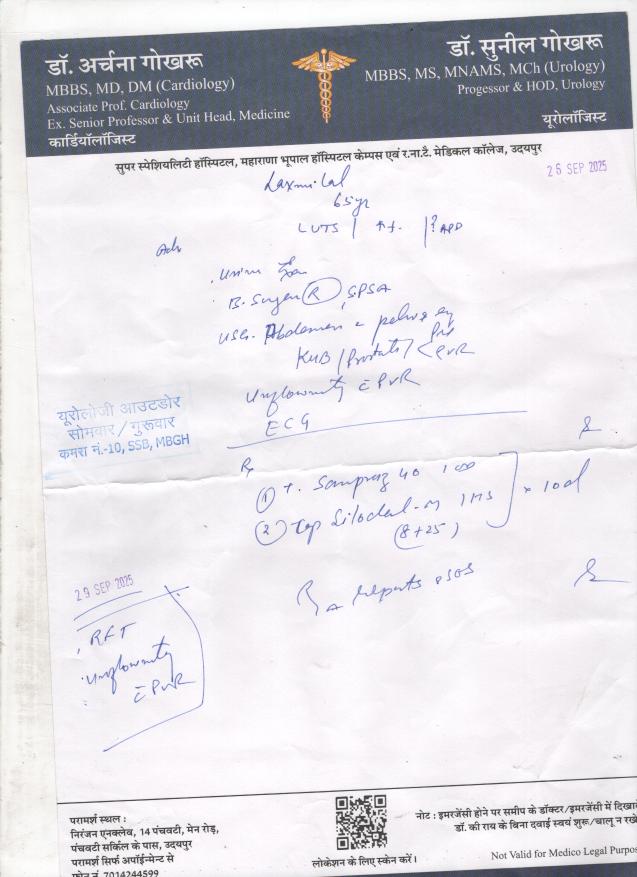 डॉ. अर्चना गोखरू
MBBS, MD, DM (Cardiology)
Associate Prof. Cardiology
Ex. Senior Professor & Unit Head, Medicine
कार्डियॉलॉजिस्ट
डॉ. सुनील गोखरू
MBBS, MS, MNAMS, MCh (Urology)
Progessor & HOD, Urology
यूरोलॉजिस्ट
सुपर स्पेशियलिटी हॉस्पिटल, महाराणा भूपाल हॉस्पिटल केम्पस एवं र.ना.टै. मेडिकल कॉलेज, उदयपुर
26 SEP 2025
Laxmi Lal
65yr
LUTS
Adv
Urine
B. Sugar (R), SPSA
USG. Abdomen pelvis
KUB / Prostate / < Pre PVR
Uroflowmetry c̄ PVR
ECG
यूरोलॉजी आउटडोर
सोमवार / गुरूवार
कमरा नं.-10, SSB, MBGH
Rx
(1) T. Sompraz 40 1 OD
(2) Cap Silodal-M 1 HS
(8+25)
x 10d
reports SOS
29 SEP 2025
RFT
Uroflowmetry
c̄ PVR
परामर्श स्थल :
निरंजन एनक्लेव, 14 पंचवटी, मेन रोड़,
पंचवटी सर्किल के पास, उदयपुर
परामर्श सिर्फ अपॉईन्मेन्ट से
फोन नं. 7014244599
लोकेशन के लिए स्केन करें।
नोट : इमरजेंसी होने पर समीप के डॉक्टर/इमरजेंसी में दिखा
डॉ. की राय के बिना दवाई स्वयं शुरू/चालू न रखें
Not Valid for Medico Legal Purpos